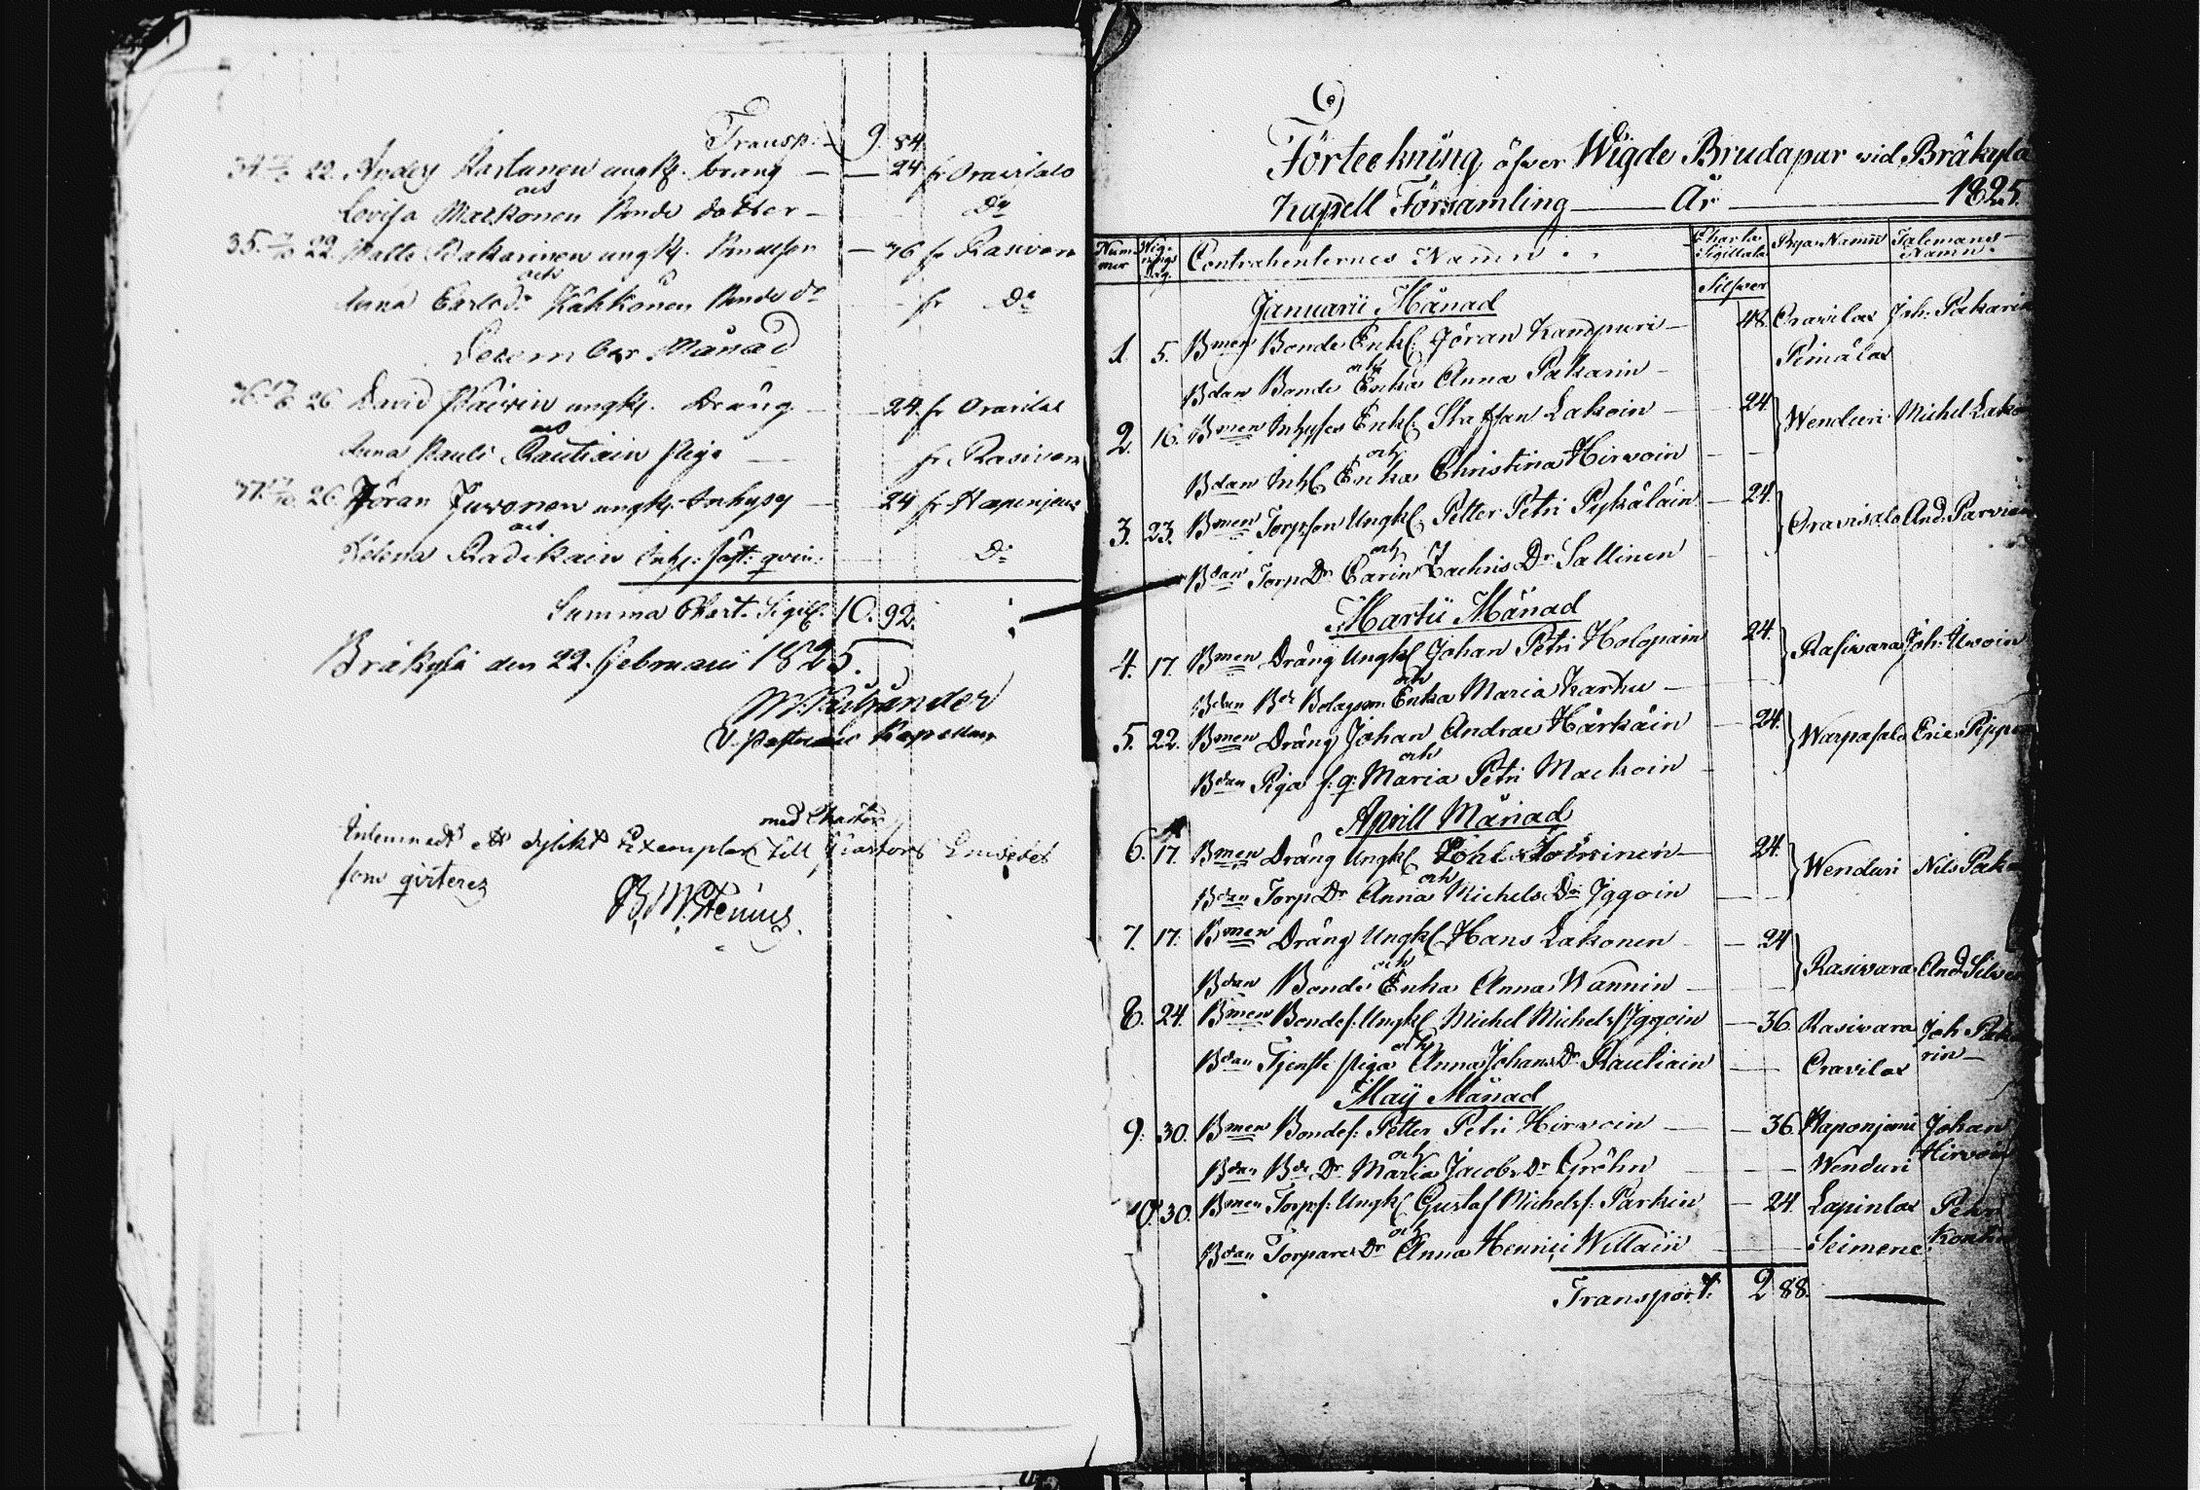 Transp: 9. 84.
34. 22. Anders Karlunen ungk. dräng — 24. fr Oravisalo
och
Lovisa Markonen Bonde dotter — Do
35. 22. Matts Pakarinen ungk. Bondeson — 36 fr Rasivara
och
Anna Carls Dr Kähkönen Bonde Dr fr Do
December Månad
36. 26 David Päivin ungk. Dräng — 24. fr Oravilax
och
Anna Pauli Rautiain Piga — fr. Rasivara
37. 26. Jöran Juvonen ungk. Inhyses — 24 fr Haponjemi
och
Helena Radikain Inh: — Do
Summa Chart. Sigill. 10. 92.
Bräkylä den 22. Februarii 1825.
V. Pastor Kapellan
med Chartor
ett dylikt Exemplar till
som qviteres
B. W. Stenius.
6
Förteckning öfver Wigde Brudapar vid Bräkylä
Kapell Församling — År — 1825.
Nummer Wigsels Dag. Contrahenternes Namn. Charta Sigillata Byas Namn Talemans Namn.
Silfver
Januarii Månad
1. 5. Bmen Bonde Enkl. Jöran Kampuri — 48. Oravilax Joh: Pakarin
och Pimälax
Bdan Bonde Enka Anna Pakarin —
2. 16. Bmen Inhyses Enkl. Staffan Lakoin — 24. Wenduri Michel Lako
och
Bdan Inh. Enka Christina Hirvoin — —
3. 23. Bmen Torpson Ungkl Petter Petri Pykäläin — 24. Oravisalo And. Parviain
och
Bdan Torp Dr Carin Zachris Dr Sallinen —
Martii Månad
4. 17. Bmen Dräng Ungkl Johan Petri Holopain 24. Rasivara Joh: Ilvoin
och
Bdan Bde Bolagsm. Enka Maria Karhu —
5. 22. Bmen Dräng Johan Andrae Härkäin — 24. Warpasalo Eric Pipp
och
Bdan Piga f. q: Maria Petri Mackoin —
Aprill Månad
6. 17. Bmen Dräng Ungkl Toivinen — 24. Wenduri Nils Pak
och
Bdan Torp Dr Anna Michels Dr Iggoin — —
7. 17. Bmen Dräng Ungkl Hans Lakonen — 24 Rasivara And. Silve
och
Bdan Bonde Enka Anna Wannin — —
8. 24. Bmen Bondes: Ungkl Michel Michelss Iggoin — 36. Rasivara Joh Paka
och rin —
Bdan Tjenste piga Anna Johans Dr Rautiain — Oravilax
Maÿ Månad
9. 30. Bmen Bondes: Petter Petri Hirvoin — — 36. Haponjemi Johan
och Hirvoin
Bdan Bde Dr Maria Jacobs Dr Gröhn — — Wenduri
10. 30. Bmen Torps: Ungkl Gustaf Michelss: Parkin — 24. Lapinlax Petri
och
Bdan Torpares Dr Anna Henrici Willain — Seimene.
Transport. 2 88. —